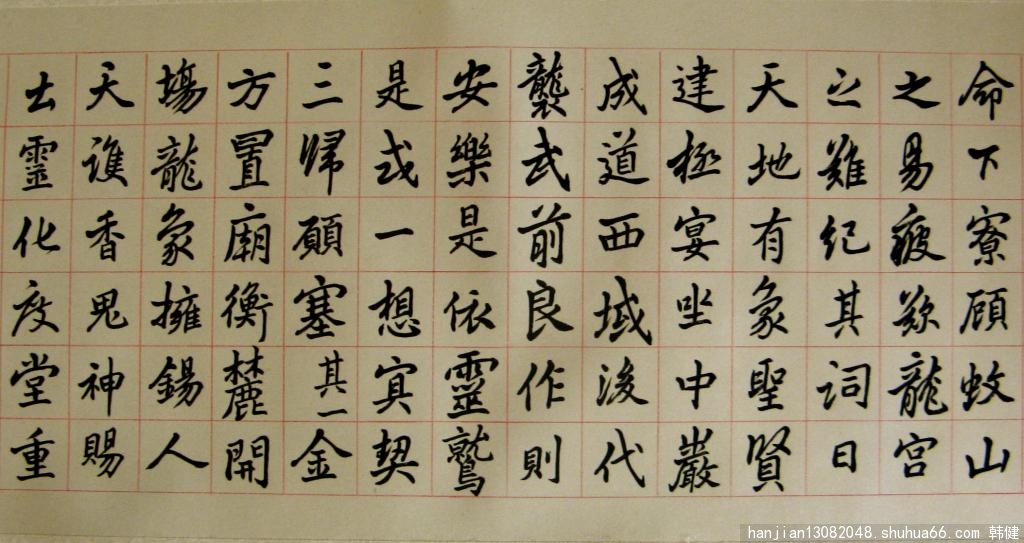 命下寮顧蚊山
之易疲歎龍宮
之難紀其詞曰
天地有象聖賢
建極宴坐中巖
成道西域後代
襲武前良作則
安樂是依靈鷲
是或一想冥契
三歸願塞其一金
方置廟衡麓開
場龍象擁錫人
天護香鬼神賜
土靈化度堂重
hanjian13082048.shuhua66.com 韩健